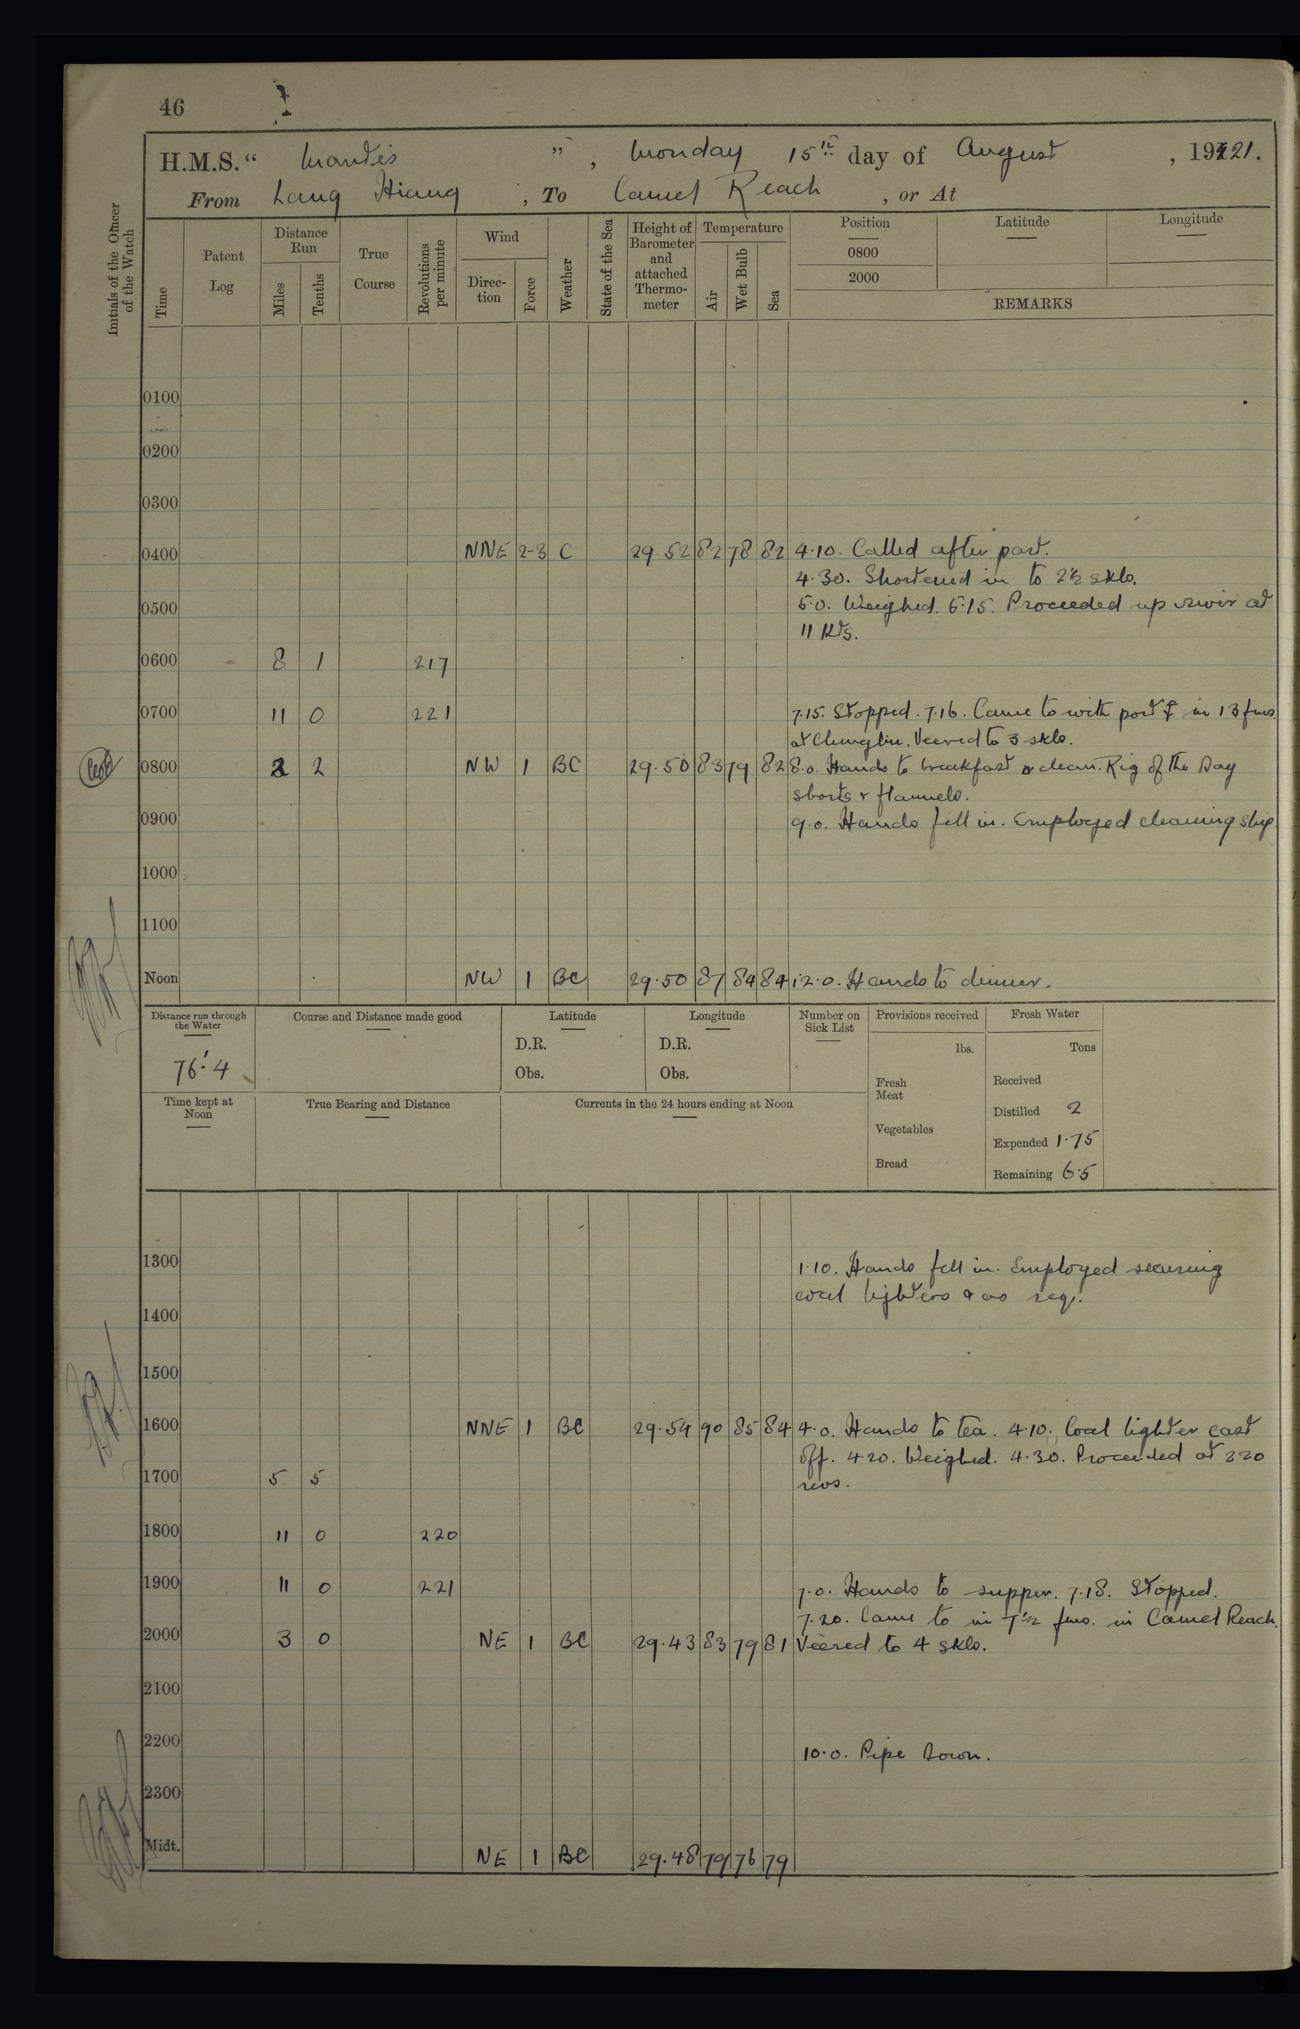 46
H.M.S. “ Mantis ” , Monday 15th day of August , 1921.
From Lang Hiang , To Camel Reach , or At
Initials of the Officer of the Watch
Time
Patent Log
Distance Run
Miles
Tenths
True Course
Revolutions per minute
Wind
Direction
Force
Weather
State of the Sea
Height of Barometer and attached Thermometer
Temperature
Air
Wet Bulb
Sea
Position
Latitude
Longitude
0800
2000
REMARKS
0100
0200
0300
0400 NNE 2-3 C 29.52 82 78 82 4.10. Called after part.
4.30. Shortened in to 2½ skls.
0500 5.0. Weighed. 5.15. Proceeded up river at
11 Kts.
0600 8 1 217
0700 11 0 221 7.15. Stopped. 7.16. Came to with port ⚓ in 13 fms
at Chunglin. Veered to 3 skls.
0800 2 2 NW 1 BC 29.50 83 79 82 8.0. Hands to breakfast & clean. Rig of the Day
shorts & flannels.
0900 9.0. Hands fell in. Employed cleaning ship
1000
1100
Noon NW 1 BC 29.50 87 84 84 12.0. Hands to dinner.
Distance run through the Water
76.4
Course and Distance made good
Latitude
D.R.
Obs.
Longitude
D.R.
Obs.
Number on Sick List
Provisions received
lbs.
Fresh Meat
Vegetables
Bread
Fresh Water
Tons
Received
Distilled 2
Expended 1.75
Remaining 6.5
Time kept at Noon
True Bearing and Distance
Currents in the 24 hours ending at Noon
1300 1.10. Hands fell in. Employed securing
coal lighters & as req.
1400
1500
1600 NNE 1 BC 29.54 90 85 84 4.0. Hands to tea. 4.10. Coal lighter cast
off. 4.20. Weighed. 4.30. Proceeded at 220
1700 5 5 revs.
1800 11 0 220
1900 11 0 221 7.0. Hands to supper. 7.18. Stopped.
7.20. Came to in 7½ fms. in Camel Reach.
2000 3 0 NE 1 BC 29.43 83 79 81 Veered to 4 skls.
2100
2200 10.0. Pipe Down.
2300
Midt. NE 1 BC 29.48 79 76 79